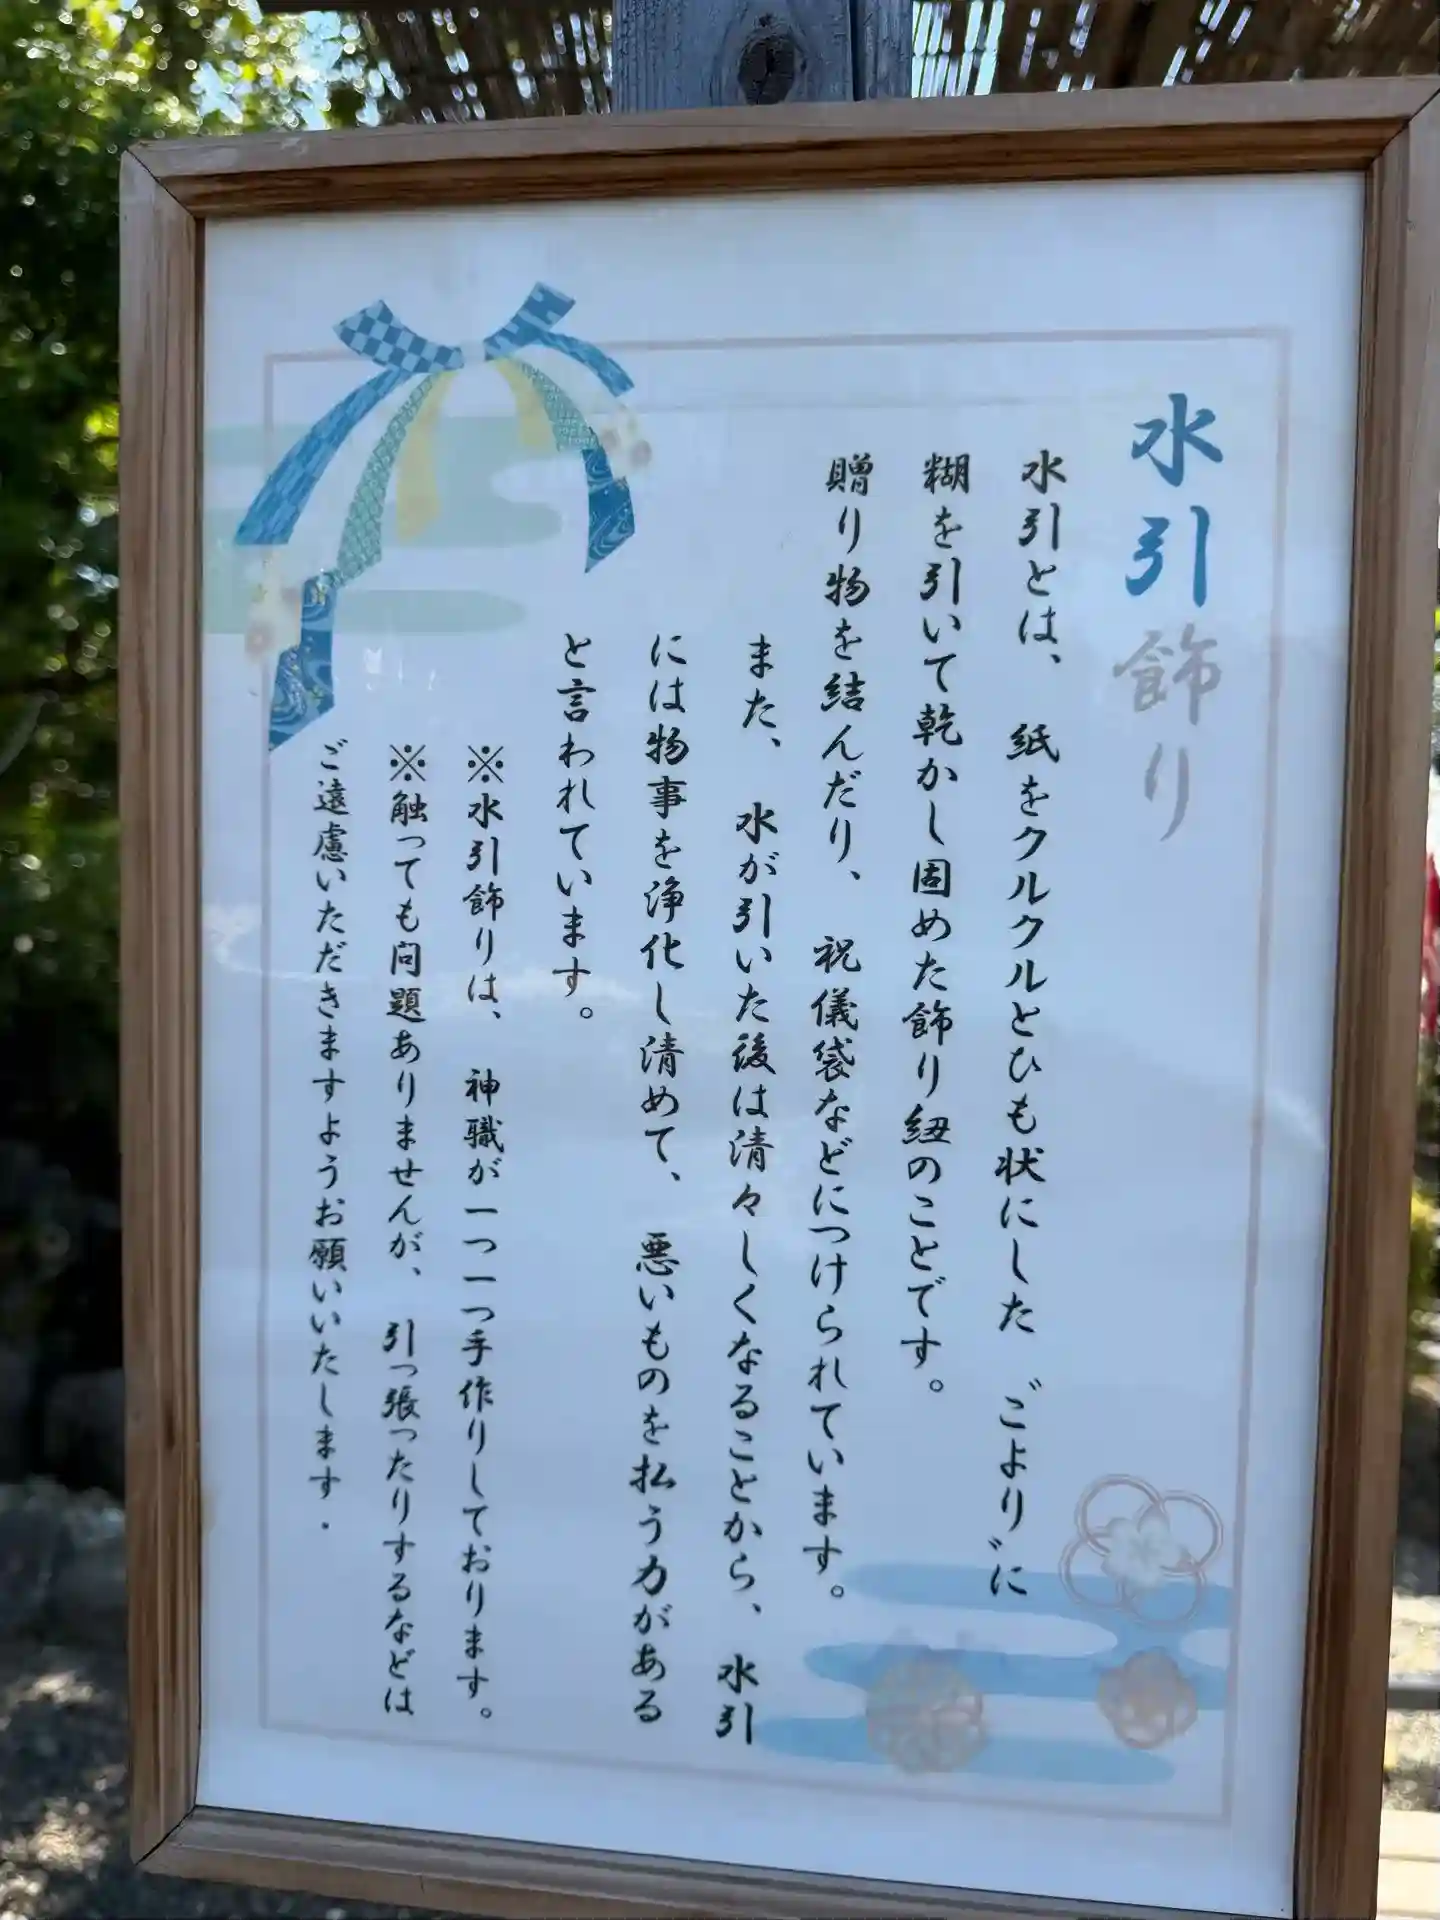 水引飾り
水引とは、紙をクルクルとひも状にした　こより〟に
糊を引いて乾かし固めた飾り紐のことです。
贈り物を結んだり、祝儀袋などにつけられています。
また、水が引いた後は清々しくなることから、水引
には物事を浄化し清めて、悪いものを払う力がある
と言われています。
※水引飾りは、神職が一つ一つ手作りしております。
※触っても問題ありませんが、引っ張ったりするなどは
ご遠慮いただきますようお願いいたします.